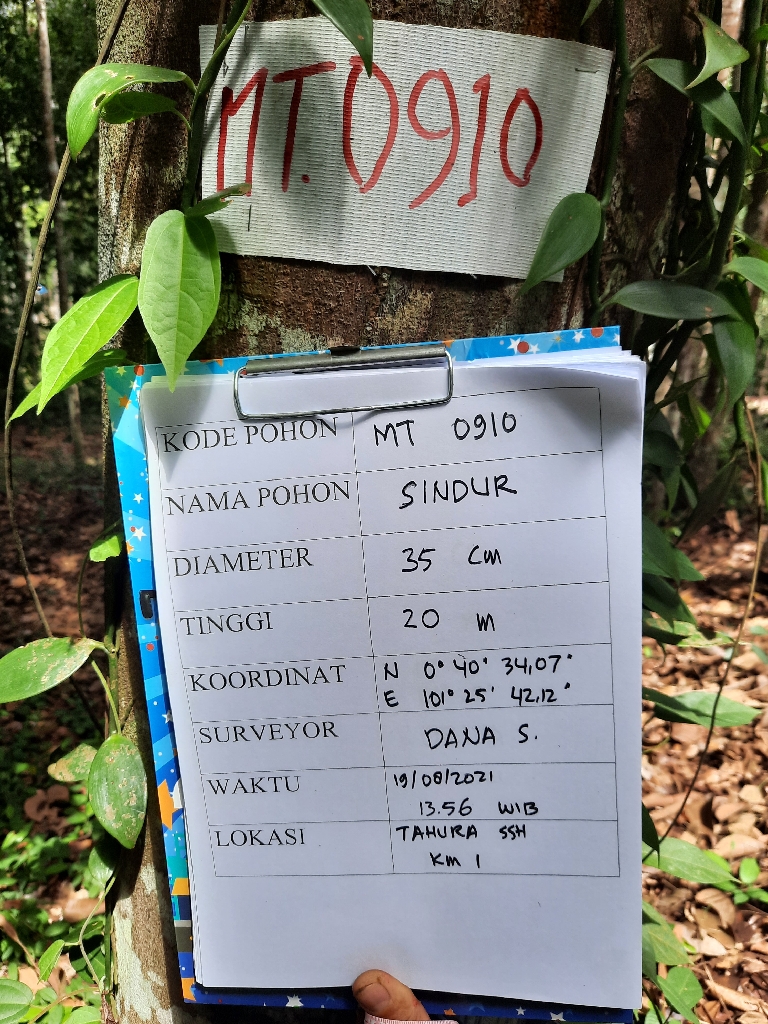 MT.0910
KODE POHON MT 0910
NAMA POHON SINDUR
DIAMETER 35 cm
TINGGI 20 m
KOORDINAT N 0° 40' 34,07"
E 101° 25' 42,12"
SURVEYOR DANA S.
WAKTU 19/08/2021
13.56 WIB
LOKASI TAHURA SSH
KM 1